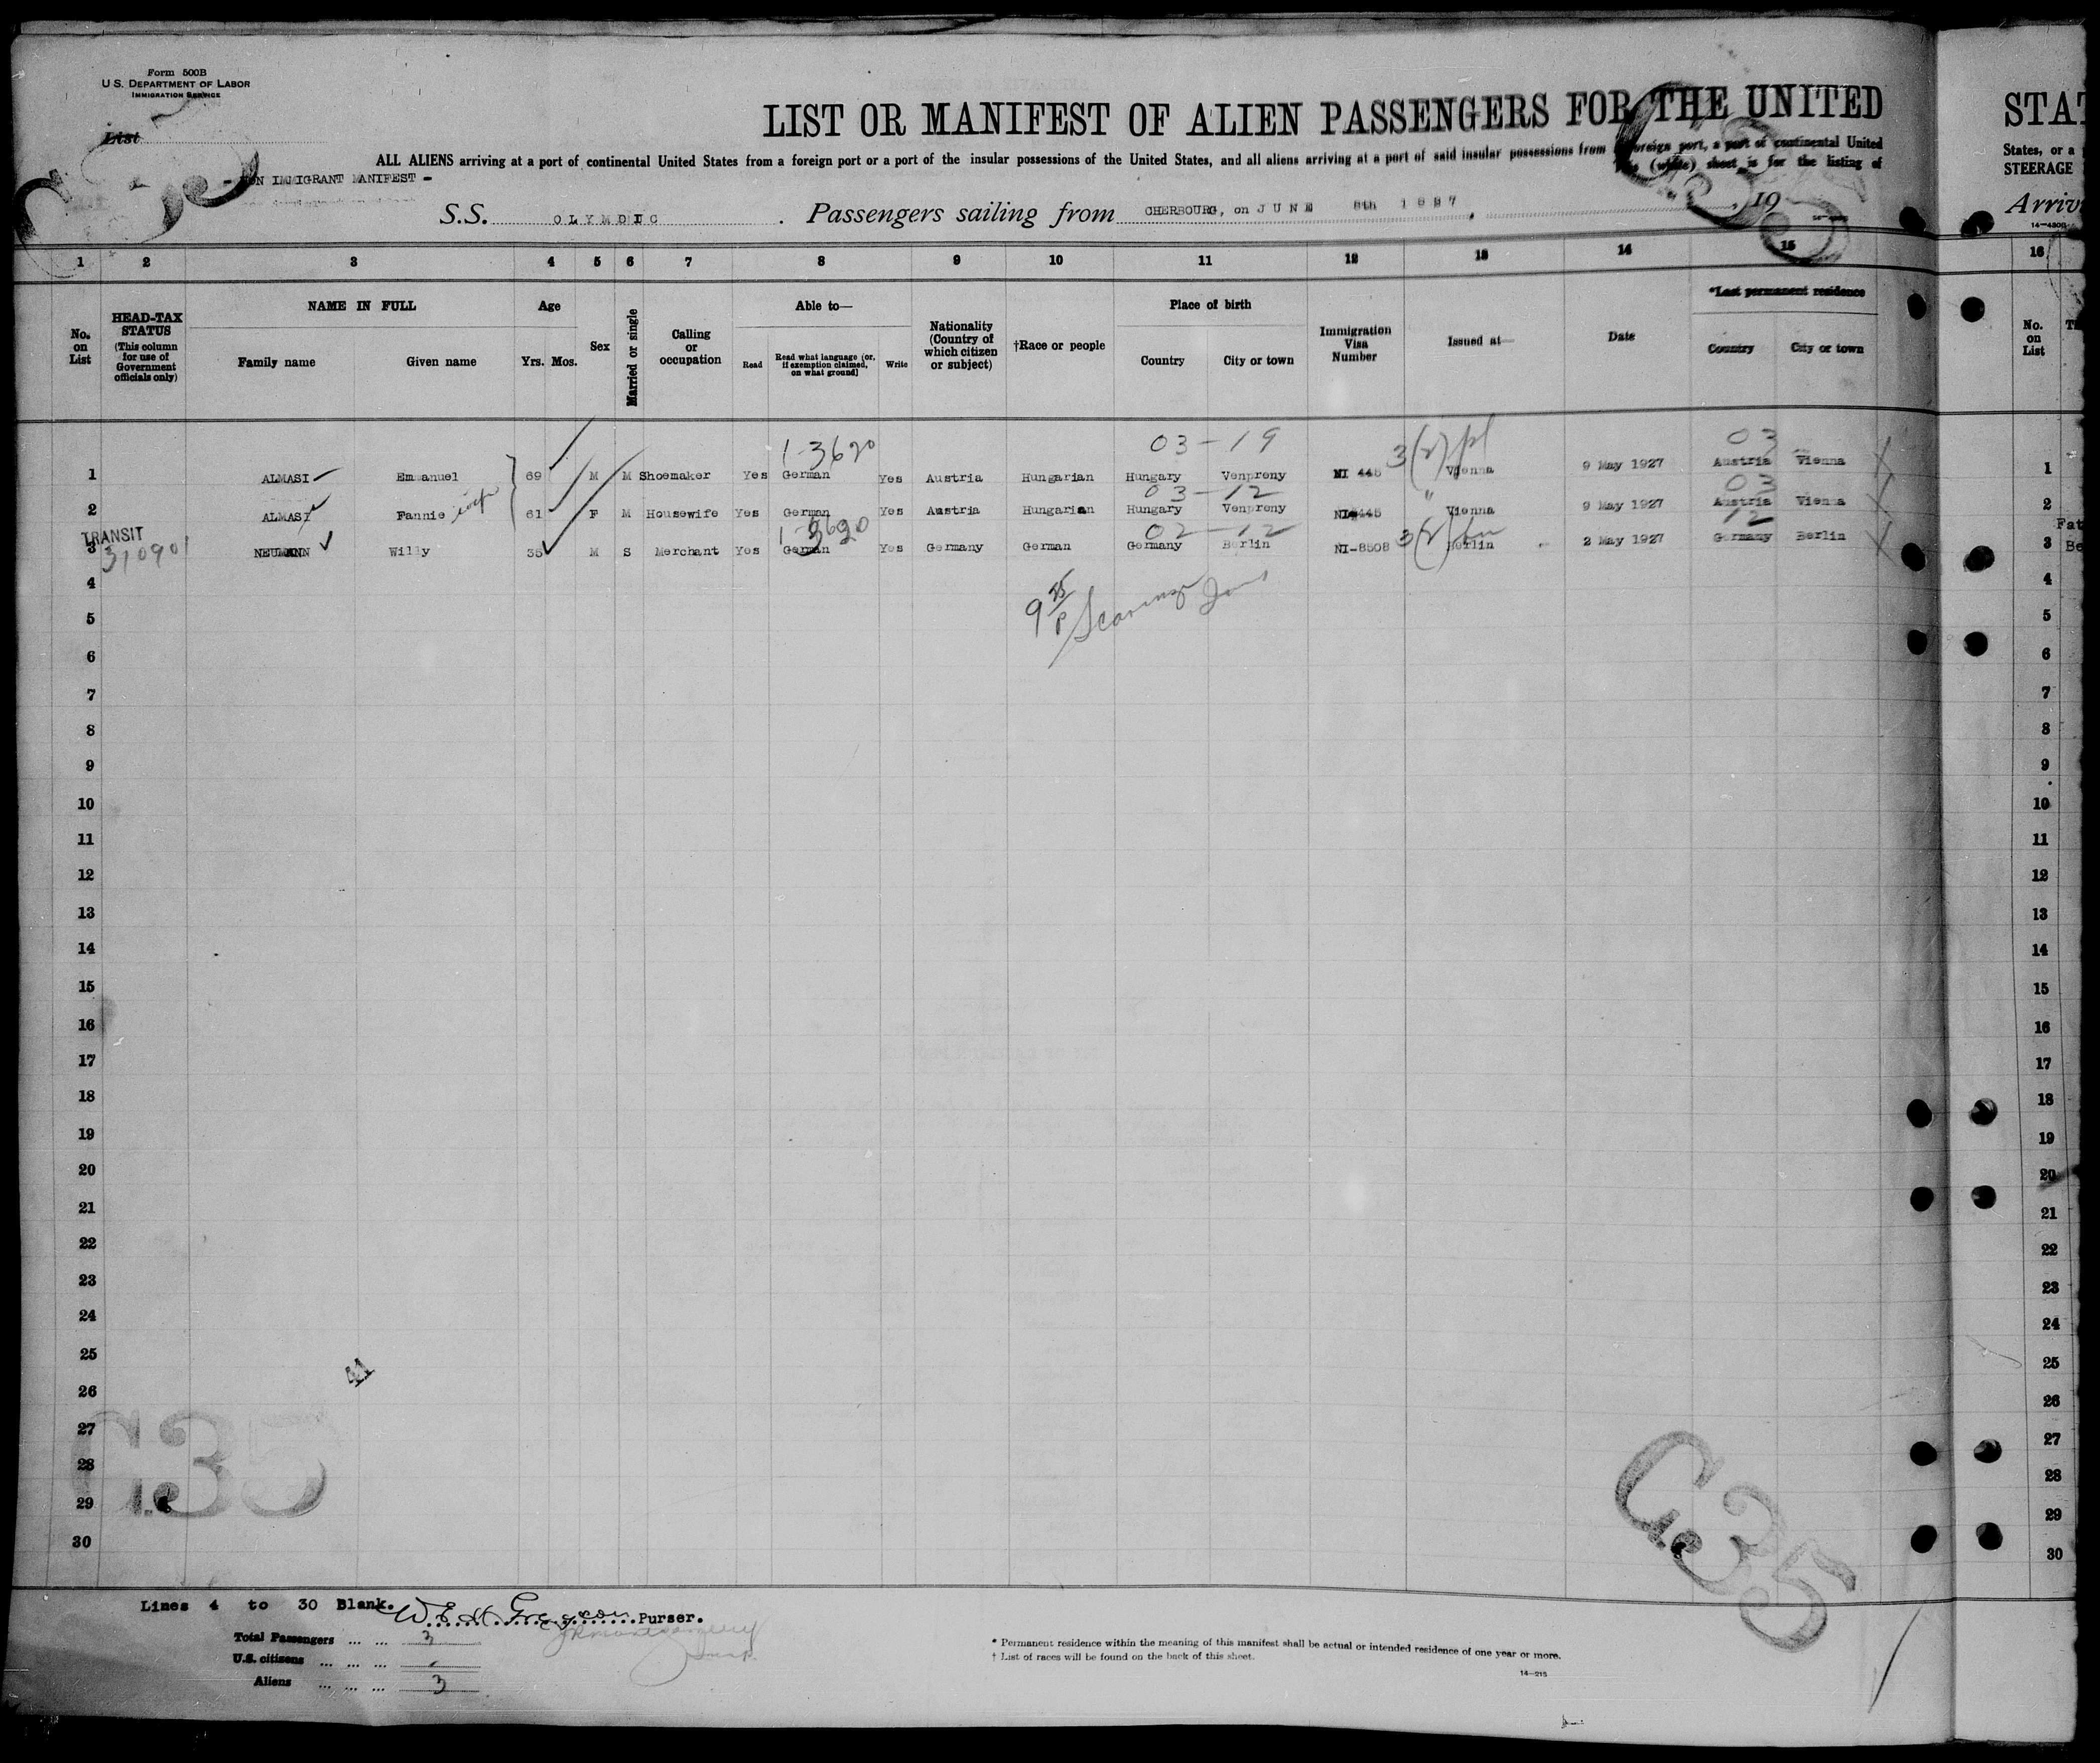 Form 500B
U.S. DEPARTMENT OF LABOR
IMMIGRATION SERVICE
List
LIST OR MANIFEST OF ALIEN PASSENGERS FOR THE UNITED
ALL ALIENS arriving at a port of continental United States from a foreign port or a port of the insular possessions of the United States, and all aliens arriving at a port of said insular possessions from foreign port, a part of continental United
(white) sheet is for the listing of
- NON IMMIGRANT MANIFEST -
S.S. OLYMPIC. Passengers sailing from CHERBOURG, on JUNE 8th 1927, 19
STAT
States, or a
STEERAGE
Arriv
1 2 3 4 5 6 7 8 9 10 11 12 13 14 15 16
No. on List
HEAD-TAX STATUS (This column for use of Government officials only)
NAME IN FULL
Family name Given name
Age
Yrs. Mos.
Sex
Married or single
Calling or occupation
Able to—
Read Read what language (or, if exemption claimed, on what ground) Write
Nationality (Country of which citizen or subject)
†Race or people
Place of birth
Country City or town
Immigration Visa Number
Issued at—
Date
*Last permanent residence
Country City or town
No. on List
1-3620 03-19 3(2) 03
1 ALMASI Emmanuel 69 M M Shoemaker Yes German Yes Austria Hungarian Hungary Venpreny NI 445 Vienna 9 May 1927 Austria Vienna 1
03-12 " 03
2 ALMASY Fannie wife 61 F M Housewife Yes German Yes Austria Hungarian Hungary Venpreny NI 445 Vienna 9 May 1927 Austria Vienna 2
TRANSIT 1-3620 02-12 3(2) 12 Fat
3 NEUMANN Willy 35 M S Merchant Yes German Yes Germany German Germany Berlin NI-8508 Berlin 2 May 1927 Germany Berlin 3 Be
310901
4 4
5 5
6 6
7 7
8 8
9 9
10 10
11 11
12 12
13 13
14 14
15 15
16 16
17 17
18 18
19 19
20 20
21 21
22 22
23 23
24 24
25 25
26 26
27 27
28 28
29 29
30 30
C35
C35
Lines 4 to 30 Blank. Purser.
Total Passengers ... ... 3
U.S. citizens ... ... ...
Aliens ... ... ... 3
* Permanent residence within the meaning of this manifest shall be actual or intended residence of one year or more.
† List of races will be found on the back of this sheet.
14—215